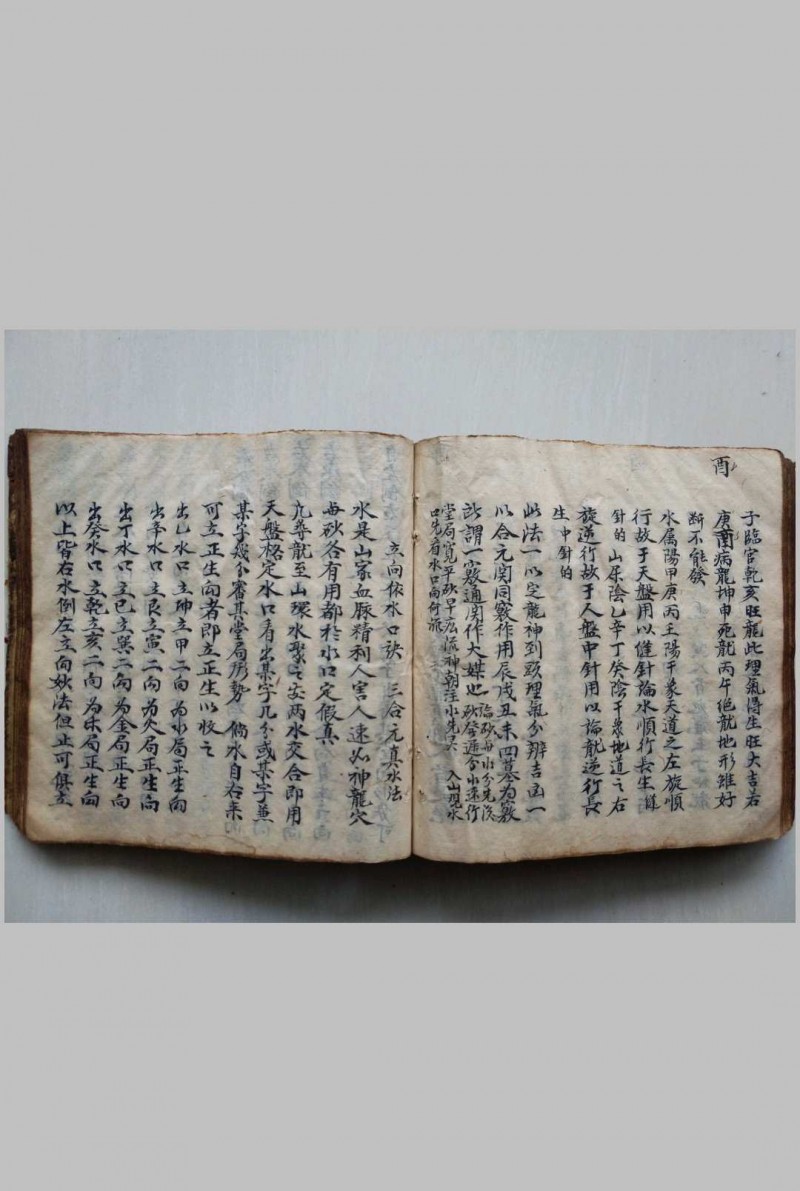 酉
子臨官乾亥旺龍此理氣得生旺大吉若
庚酉病龍坤申死龍丙午绝龍地形雖好
断不能發
水属陽甲庚丙壬陽干象天道之左旋順
行故于天盤用以缝針論水順行長生
針的 山屬陰乙辛丁癸陰干象地道之右
旋逆行故于人盤中針用以論龍逆行長
生中針的
此法一以定龍神到頭理氣分辨吉凶一
以合元関同竅作用辰戌丑未四墓为竅
所謂一竅通関作大媒也
堂局寬平 神朝注水先 入山观水
口先看水口向何
立向依水口诀 三合元真水法
水是山家血脉精利人害人速必神龍穴
每砂各有用都於水口定假真
凢尋龍至山環水聚之安两水交合即用
天盤格定水口看出某字几分或某字兼
某字幾分審某堂局形勢 倘水自右来
可立正生向者即立正生以收之
出乙水口立坤立申二向为水局正生向
出辛水口立艮立寅二向为火局正生向
出丁水口立巳立巽二向为金局正生向
出癸水口立乾立亥二向为木局正生向
以上皆右水倒左立向妙法但止可俱立